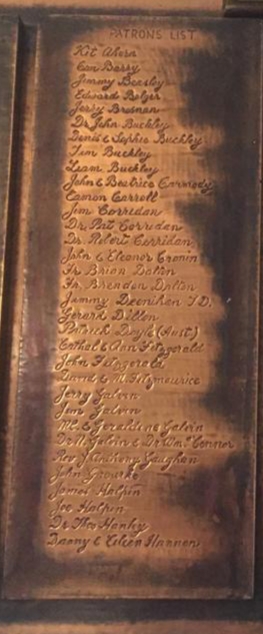 PATRONS LIST
Kit Ahern
Con Barry
Jimmy Beasley
Edward Bolger
Jerry Brosnan
Dr John Buckley
Denis & Sophie Buckley
Tim Buckley
Liam Buckley
John & Beatrice Carmody
Eamon Carroll
Jim Corridan
Dr. Pat Corridan
Dr. Robert Corridan
John & Eleanor Cronin
Fr Brian Dalton
Fr. Brendan Dalton
Jimmy Deenihan T.D.
Gerard Dillon
Patrick Doyle (Aust)
Cathal & Ann Fitzgerald
John Fitzgerald
David & M. Fitzmaurice
Jerry Galvin
Jim Galvin
& Geraldine Galvin
Dr N. Galvin & Dr D Mc Connor
Rev J Anthony Gaughan
John
James Halpin
Joe Halpin
Dr Thos Hanley
Danny & Eileen Hannon